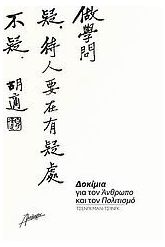 做學問
疑，待人要在有疑處
不疑．胡適
Δοκίμια
για τον Άνθρωπο
και τον Πολιτισμό